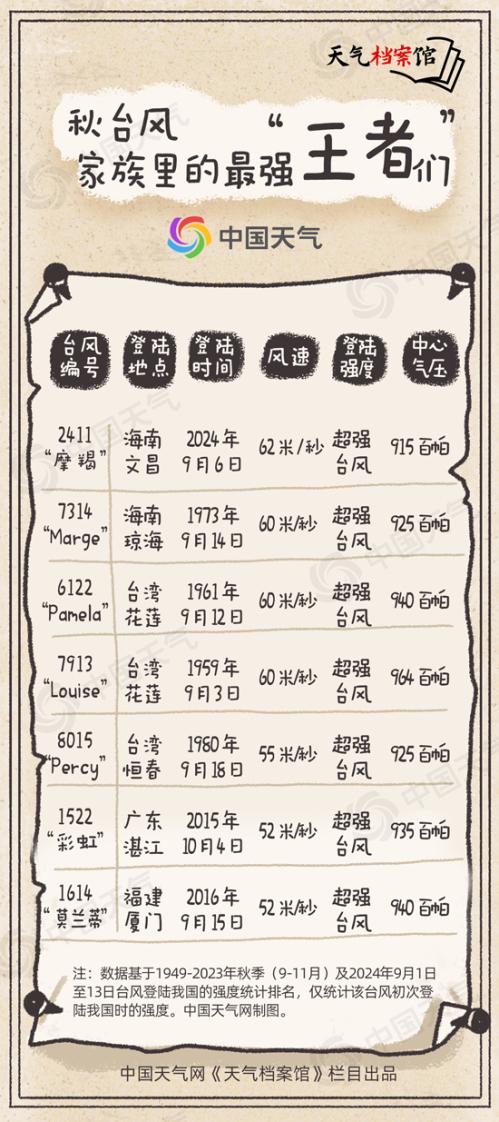 天气档案馆
秋台风
家族里的最强“王者”们
中国天气
台风编号 登陆地点 登陆时间 风速 登陆强度 中心气压
2411“摩羯” 海南文昌 2024年9月6日 62米/秒 超强台风 915百帕
7314“Marge” 海南琼海 1973年9月14日 60米/秒 超强台风 925百帕
6122“Pamela” 台湾花莲 1961年9月12日 60米/秒 超强台风 940百帕
7913“Louise” 台湾花莲 1959年9月3日 60米/秒 超强台风 964百帕
8015“Percy” 台湾恒春 1980年9月18日 55米/秒 超强台风 925百帕
1522“彩虹” 广东湛江 2015年10月4日 52米/秒 超强台风 935百帕
1614“莫兰蒂” 福建厦门 2016年9月15日 52米/秒 超强台风 940百帕
注：数据基于1949-2023年秋季（9-11月）及2024年9月1日
至13日台风登陆我国的强度统计排名，仅统计该台风初次登
陆我国时的强度。中国天气网制图。
中国天气网《天气档案馆》栏目出品